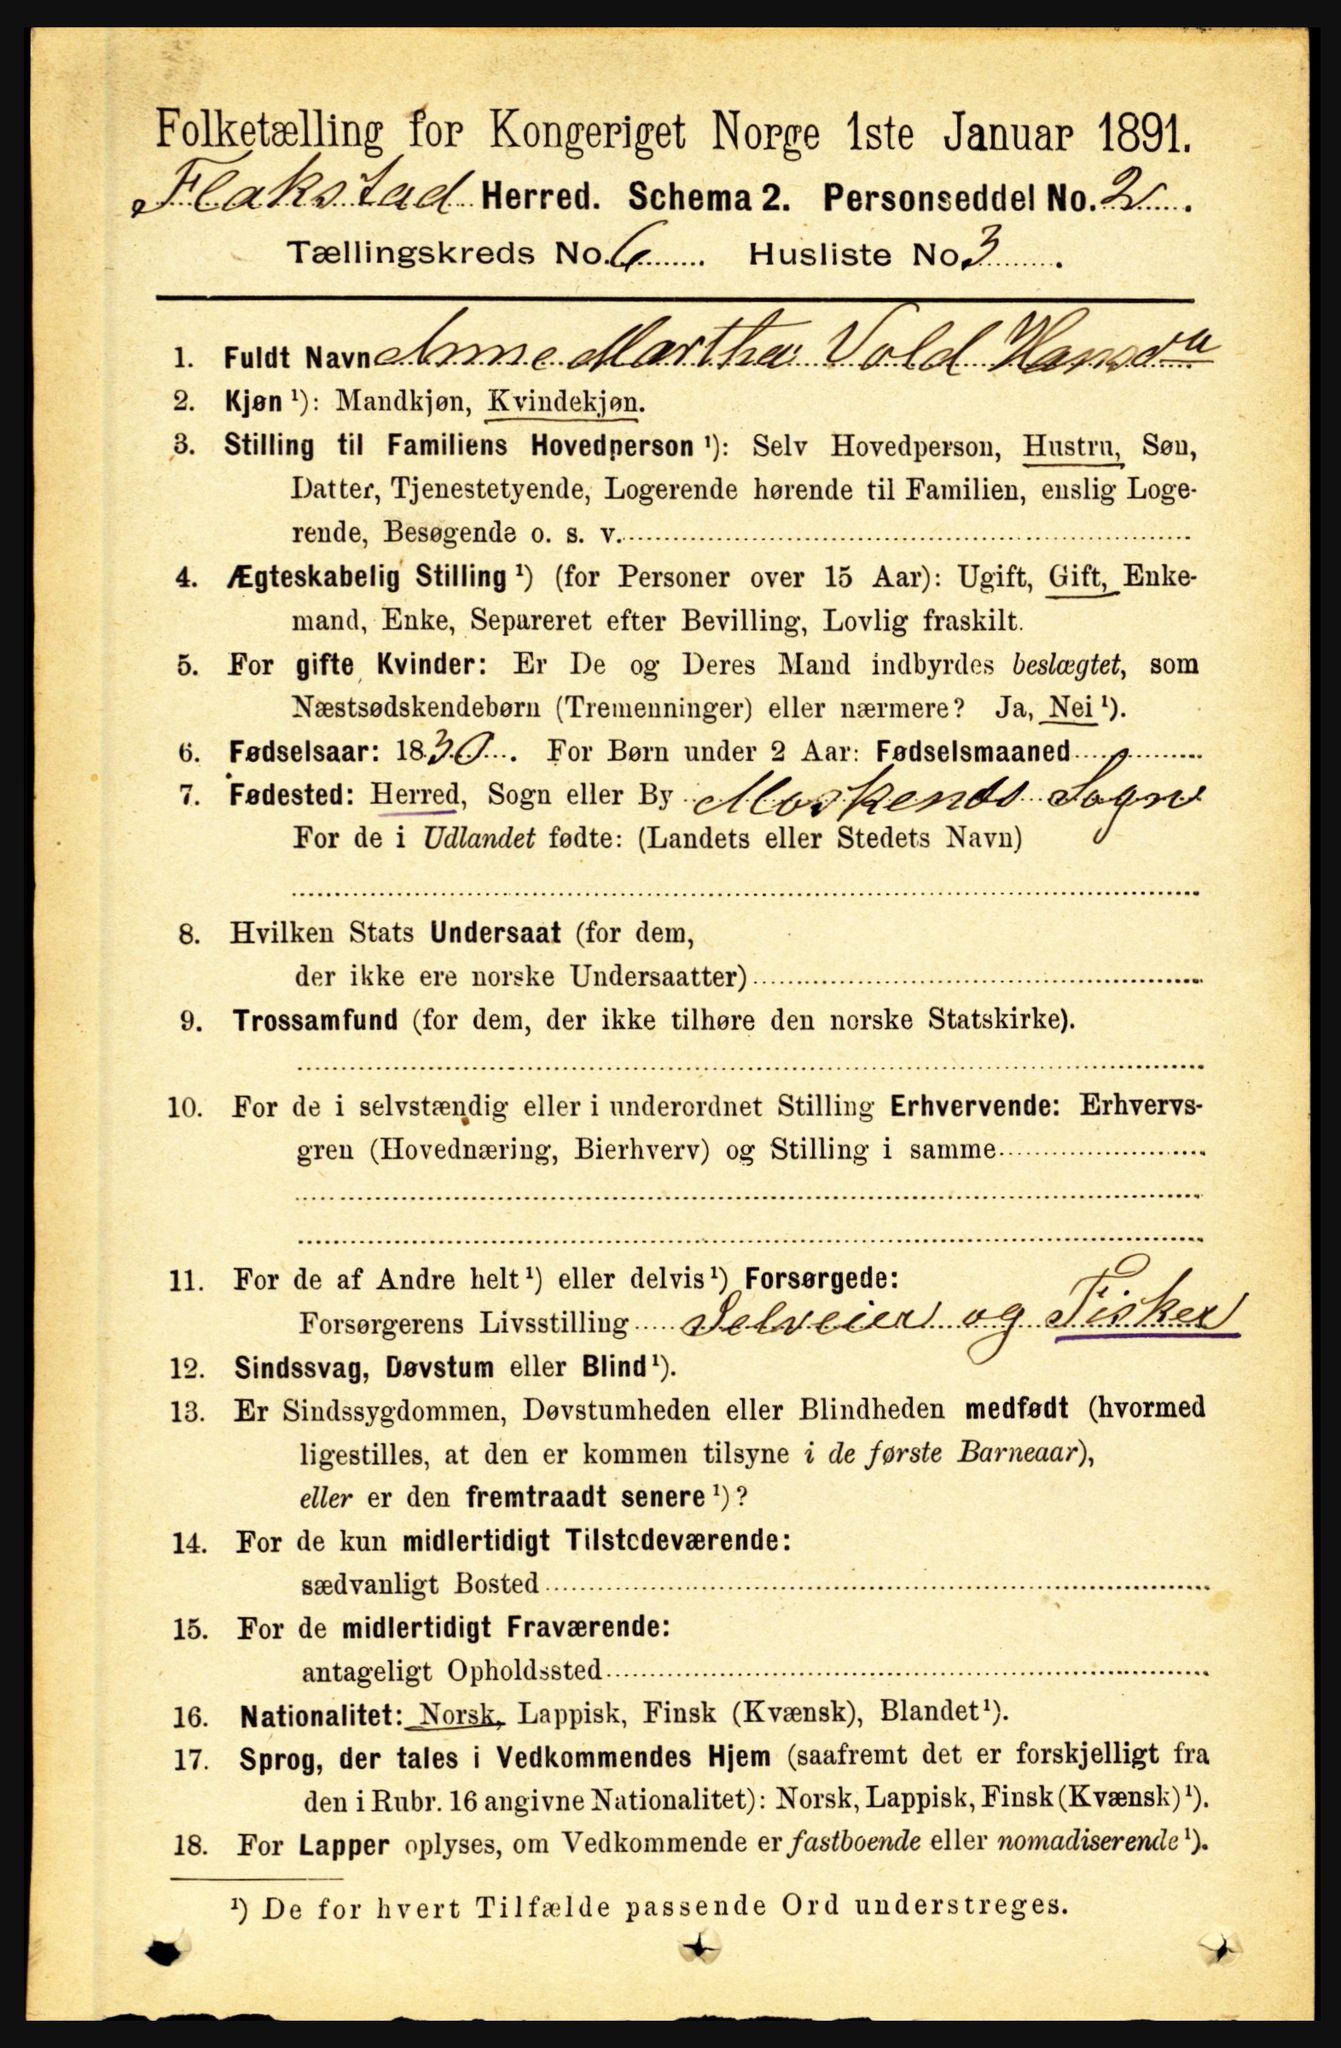 Folketælling for Kongeriget Norge 1ste Januar 1891.
Flakstad Herred. Schema 2. Personseddel No. 2.
Tællingskreds No. 6. Husliste No. 3.
1. Fuldt Navn Anne Martha Vold Hansda
2. Kjøn ¹): Mandkjøn, Kvindekjøn.
3. Stilling til Familiens Hovedperson ¹): Selv Hovedperson, Hustru, Søn,
Datter, Tjenestetyende, Logerende hørende til Familien, enslig Loge-
rende, Besøgende o. s. v.
4. Ægteskabelig Stilling ¹) (for Personer over 15 Aar): Ugift, Gift, Enke-
mand, Enke, Separeret efter Bevilling, Lovlig fraskilt.
5. For gifte Kvinder: Er De og Deres Mand indbyrdes beslægtet, som
Næstsødskendebørn (Tremenninger) eller nærmere? Ja, Nei ¹).
6. Fødselsaar: 1830. For Børn under 2 Aar: Fødselsmaaned
7. Fødested: Herred, Sogn eller By Moskenes Sogn
For de i Udlandet fødte: (Landets eller Stedets Navn)
8. Hvilken Stats Undersaat (for dem,
der ikke ere norske Undersaatter)
9. Trossamfund (for dem, der ikke tilhøre den norske Statskirke).
10. For de i selvstændig eller i underordnet Stilling Erhvervende: Erhvervs-
gren (Hovednæring, Bierhverv) og Stilling i samme
11. For de af Andre helt ¹) eller delvis ¹) Forsørgede:
Forsørgerens Livsstilling Selveier og Fisker
12. Sindssvag, Døvstum eller Blind ¹).
13. Er Sindssygdommen, Døvstumheden eller Blindheden medfødt (hvormed
ligestilles, at den er kommen tilsyne i de første Barneaar),
eller er den fremtraadt senere ¹)?
14. For de kun midlertidigt Tilstedeværende:
sædvanligt Bosted
15. For de midlertidigt Fraværende:
antageligt Opholdssted
16. Nationalitet: Norsk, Lappisk, Finsk (Kvænsk), Blandet ¹).
17. Sprog, der tales i Vedkommendes Hjem (saafremt det er forskjelligt fra
den i Rubr. 16 angivne Nationalitet): Norsk, Lappisk, Finsk (Kvænsk) ¹).
18. For Lapper oplyses, om Vedkommende er fastboende eller nomadiserende ¹).
¹) De for hvert Tilfælde passende Ord understreges.